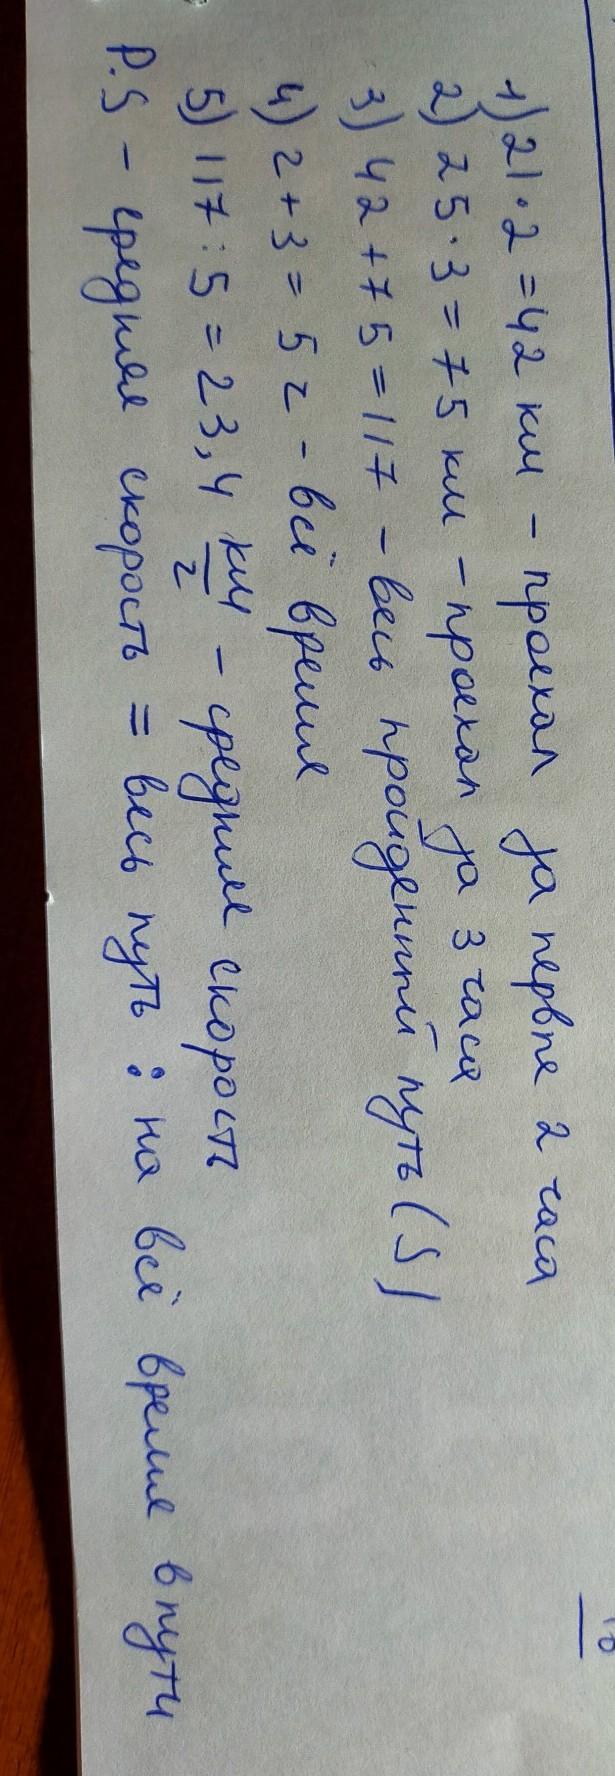 1) 21·2=42 км - проехал за первые 2 часа
2) 25·3=75 км - проехал за 3 часа
3) 42+75=117 - весь пройденный путь (S)
4) 2+3=5 г - всё время
5) 117:5=23,4 км/г - средняя скорость
P.S - средняя скорость = весь путь : на всё время в пути